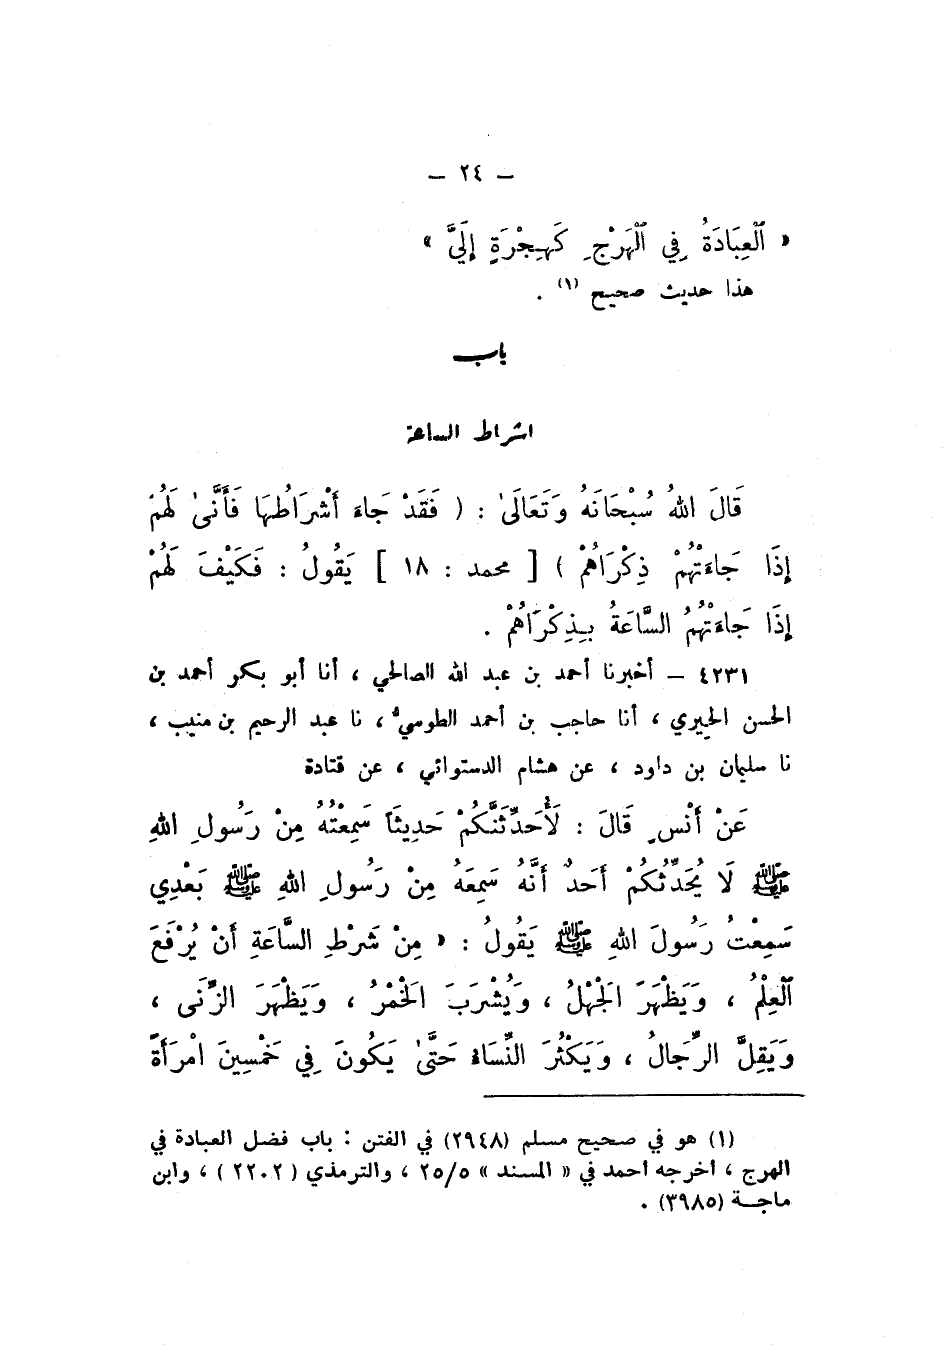 – ٢٤ –
« ٱلْعِبَادَةُ فِي ٱلْهَرْجِ كَهِجْرَةٍ إِلَيَّ »
هذا حديث صحيح (١) .
باب
اشراط الساعة
قَالَ اللهُ سُبْحَانَهُ وَتَعَالَىٰ : ( فَقَدْ جَاءَ أَشْرَاطُهَا فَأَنَّىٰ لَهُمْ
إِذَا جَاءَتْهُمْ ذِكْرَاهُمْ ) [ محمد : ١٨ ] يَقُولُ : فَكَيْفَ لَهُمْ
إِذَا جَاءَتْهُمُ السَّاعَةُ بِذِكْرَاهُمْ .
٤٢٣١ – أخبرنا أحمد بن عبد الله الصالحي ، أنا أبو بكر أحمد بن
الحسن الحِيري ، أنا حاجب بن أحمد الطوسيُّ ، نا عبد الرحيم بن منيب ،
نا سليمان بن داود ، عن هشام الدستوائي ، عن قتادة
عَنْ أَنْسٍ قَالَ : لَأُحَدِّثَنَّكُمْ حَدِيثَاً سَمِعْتُهُ مِنْ رَسُولِ اللهِ
ﷺ لَا يُحَدِّثُكُمْ أَحَدٌ أَنَّهُ سَمِعَهُ مِنْ رَسُولِ اللهِ ﷺ بَعْدِي
سَمِعْتُ رَسُولَ اللهِ ﷺ يَقُولُ : « مِنْ شَرْطِ السَّاعَةِ أَنْ يُرْفَعَ
ٱلْعِلْمُ ، وَيَظْهَرَ الْجَهْلُ ، وَيُشْرَبَ الْخَمْرُ ، وَيَظْهَرَ الزِّنَى ،
وَيَقِلَّ الرِّجَالُ ، وَيَكْثُرَ النِّسَاءُ حَتَّىٰ يَكُونَ فِي خَمْسِينَ امْرَأَةً
(١) هو في صحيح مسلم (٢٩٤٨) في الفتن : باب فضل العبادة في
الهرج ، اخرجه احمد في « المسند » ٢٥/٥ ، والترمذي ( ٢٢٠٢ ) ، وابن
ماجة (٣٩٨٥) .